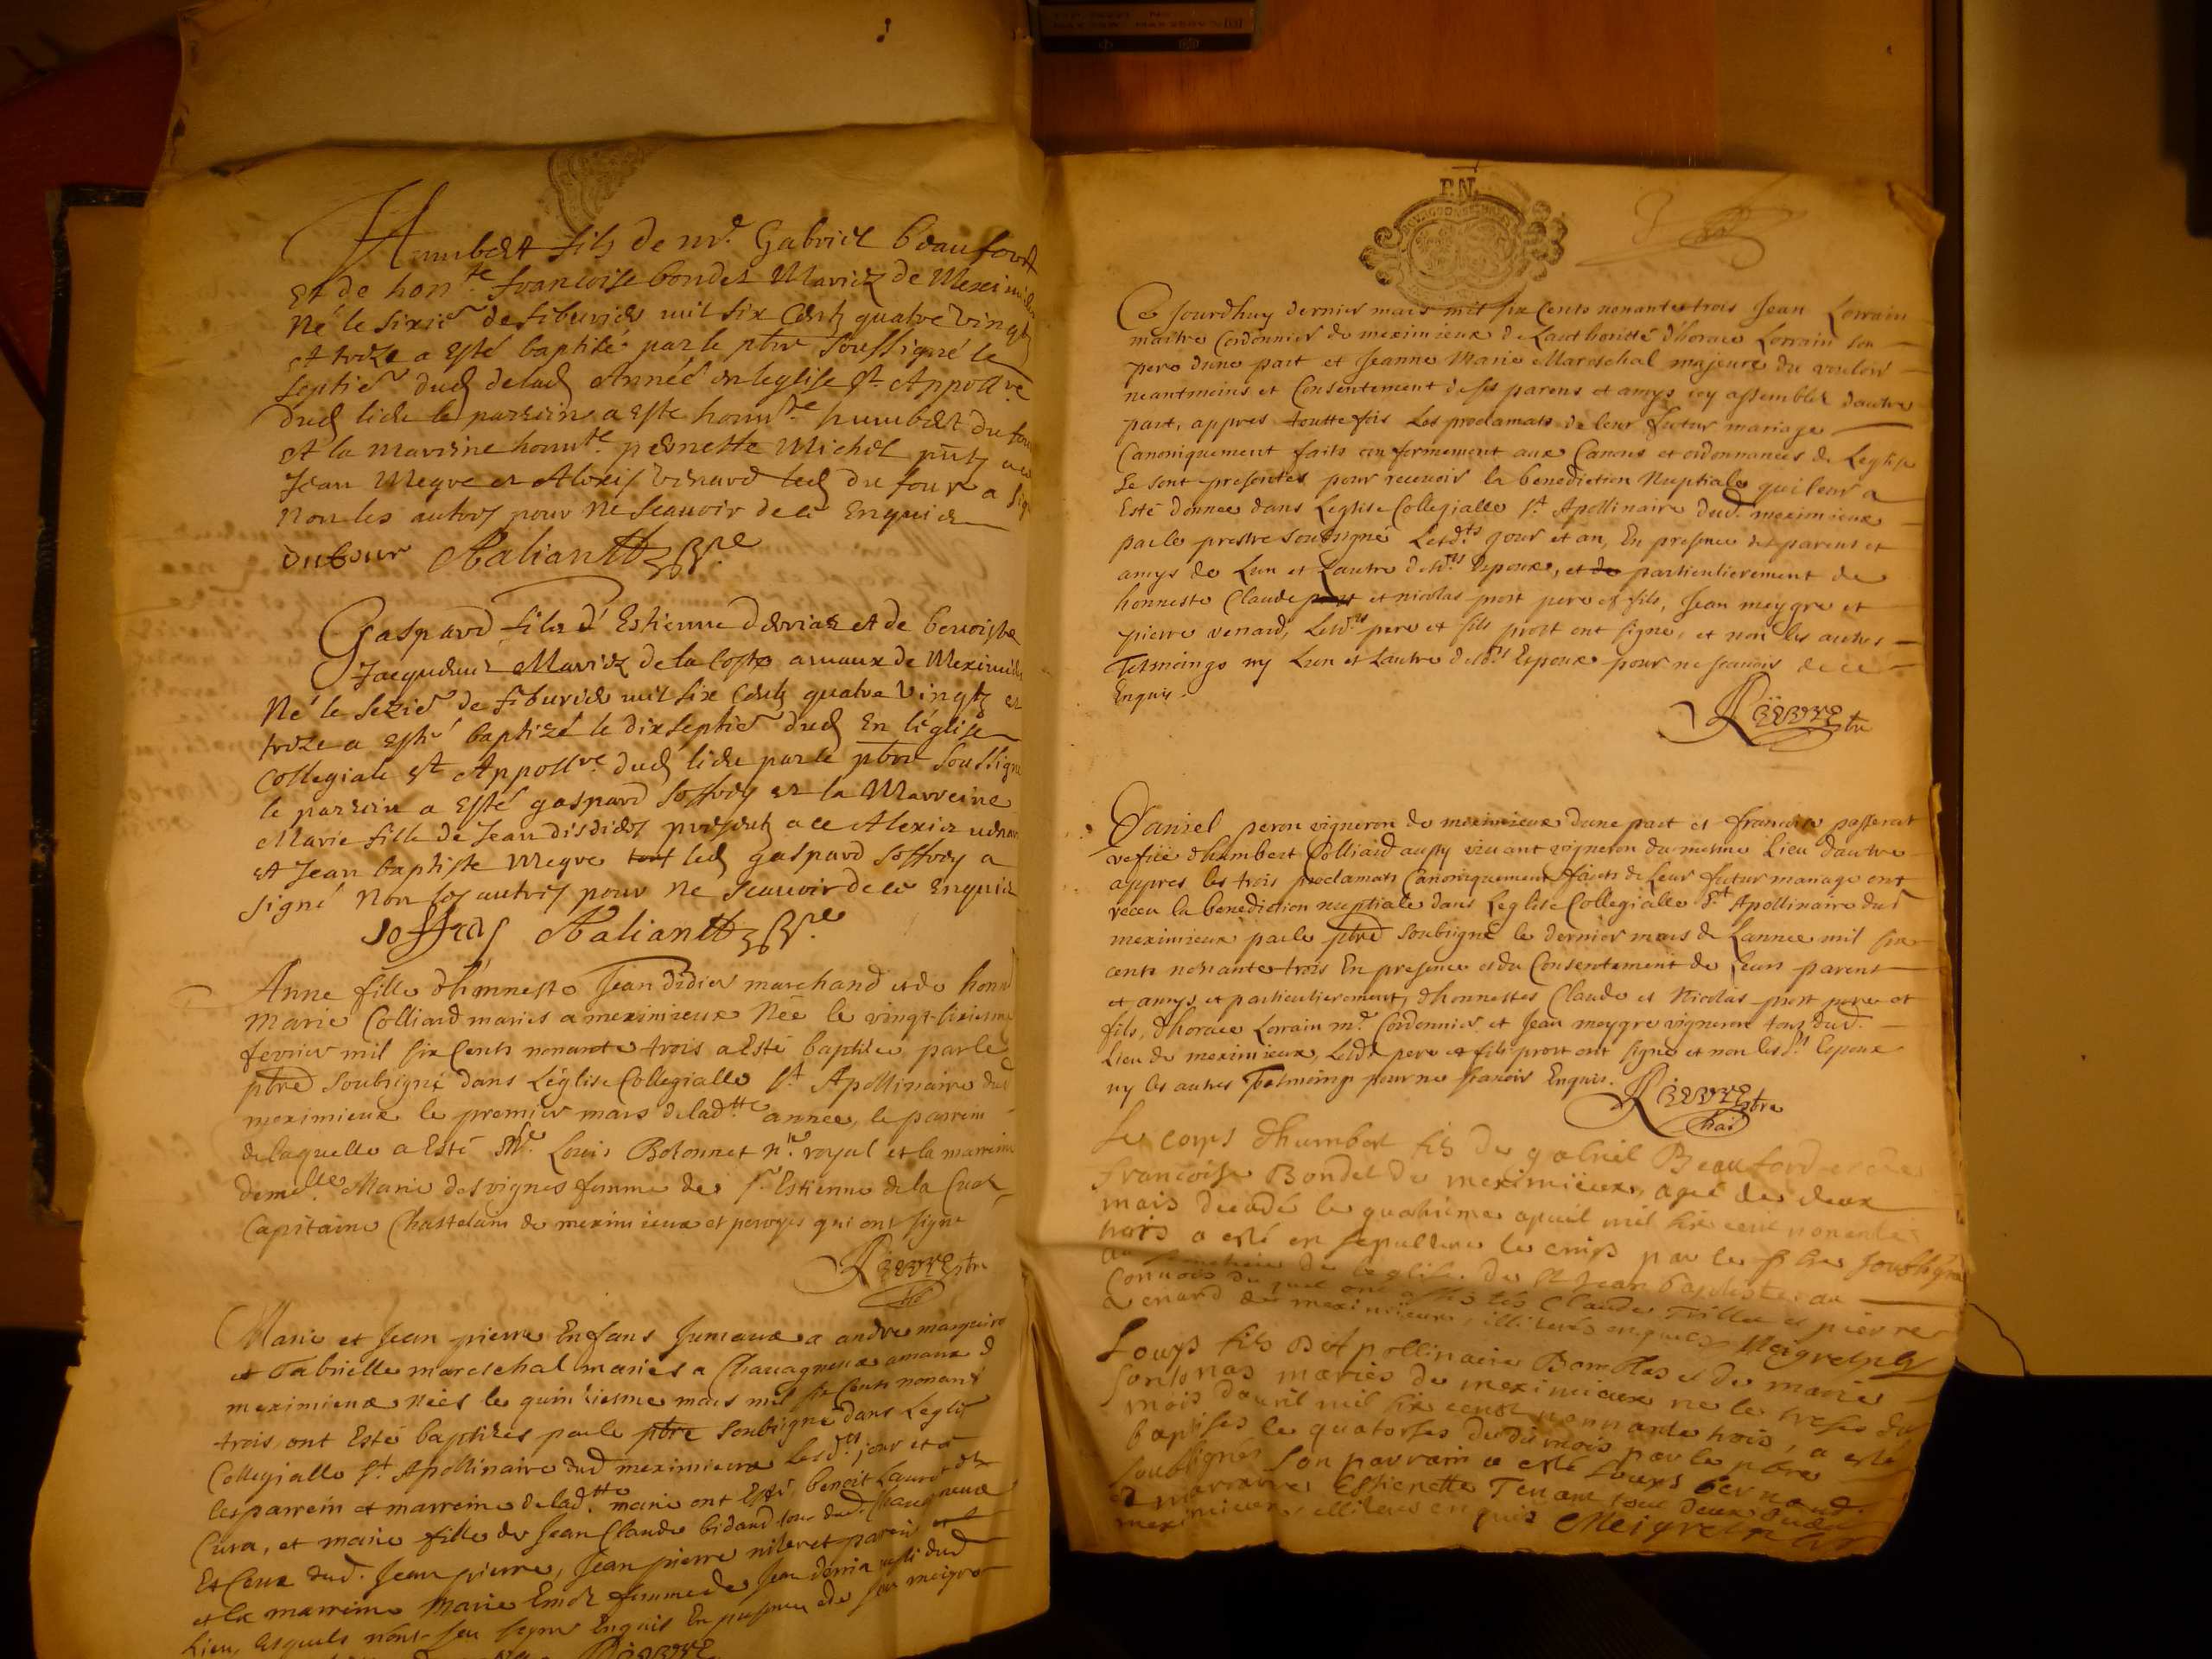 Humbert fils de mr. Gabriel beaufort
Et de honte. francoise bondet Mariez de Meximieu
Né le sixier de feburier mil six Cents quatre vingts
et treze a Esté baptisé par le ptre soussigné le
septier dud de lad Année en leglise st. Appollre
dud lieu le parrein a este honnte humbert du four
et la marreine honnte. pernette Michel pnts
Jean Megre et Alexis Venard led du four a sig
non les autres pour ne scauoir de ce Enquis
Dufour Aaliantt
Gaspard fils d'Estienne derriaz et de benoiste
Jacquemet Mariez de la Coste amaux de Meximieu
Né le sezier de feburier mil six Cents quatre vingts et
treze a esté baptizé le dixseptier dud En léglise
Collegiale st Appollre dud lieu par le ptre soussigné
le parrein a Esté gaspard soffrey et la Marreine
Marie fille de Jean disdier presents a ce Alexis venard
et Jean baptiste Megre led gaspard soffrey a
signé non les autres pour ne scauoir de ce Enquis
soffrey Aaliantt
Anne fille dhonneste Jean didier marchand et de honn
Marie Colliard mariés a meximieux Née le vingt-sixiesme
fevrier mil six Cents nonante trois a Esté baptisée par le
ptre soubsigné dans Léglise Collegialle st Apollinaire dud
meximieux le premier mars de ladtte année, le parrein
de laquelle a Esté Me. Louis Bolonnet nre royal et la marreine
demelle Marie desvignes femme de sr Estienne de la Cua
Capitaine Chastelain de meximieux et peroges qui ont signé
Rievre ptre
Marie et Jean pierre Enfans Jumeaux a andre
et Gabrielle mareschal mariés a Chauagneux amaux d
meximieux nées le quinziesme mars mil six Cents nonant
trois, ont Esté baptisés par le ptre soubsigné dans Leglis
Collegialle st Apollinaire dud meximieux lesdts jour et a
les parrein et marreine de ladtte marie ont Esté benoit Laurent
Cura, et marie fille de Jean Claude bidaud tous dud. Chaugneux
Et Ceux dud. Jean pierre, Jean pierre parein
et la marreine Marie femme de Jean dud
Lieu, lesquels n'ont sceu signe Enquis En presence de Jean meigre
Rievre
P.N.
Ce Jourdhuy dernier mars mil six Cents nonante trois Jean Lorrain
maitre Cordonnier de meximieux de Lauthoritté d'horace Lorrain son
pere dune part et Jeanne Marie Mareschal majeure du vouloir
neantmoins et Consentement de ses parens et amys icy assemblez dautre
part, appres touttefois les proclamats de leur futur mariage
Canoniquement faits conformement aux Canons et ordonnances de Leglise
Se sont presentés pour receuoir la benediction Nuptiale qui leur a
Esté donnée dans Leglise Collegialle st Apollinaire dud. meximieux
par le prestre soubsigné Lesdts jour et an, En presence des parens et
amys de Lun et Lautre desdts Espoux, et de particulierement de
honneste Claude prost et nicolas prost pere et fils, Jean meygre et
pierre venard, Lesdts pere et fils prost ont signé, et non les autres
Tesmoings ny Lun et Lautre desdts Espoux pour ne scauoir de ce
Enquis.
Rievre ptre
Daniel peron vigneron de meximieux dune part et francoise passerat
vefue dhumbert Colliard aussy viuant vigneron du mesme Lieu dautre
appres les trois proclamats Canoniquement faicts de Leur futur mariage ont
receu la benediction nuptiale dans Leglise Collegialle st Apollinaire dud
meximieux par le ptre soubsigné le dernier mars de Lannée mil six
cents nonante trois En presence et du Consentement de Leurs parens
et amys, et particulierement, dhonnestes Claude et Nicolas prost pere et
fils, dhorace Lorrain me. Cordonnier et Jean meygre vigneron tous dud.
Lieu de meximieux, Lesds pere et fils prost ont signe et non lesds Espoux
ny les autres Tesmoings pour ne scauoir Enquis.
Rievre ptre
Le corps dhumbert fils de gabriel Beauford et de
francoise Bondet de meximieux, agé de deux
mois decedé le quatrieme apuril mil six cent nonante
trois a esté en sepulture le par le ptre soubsigné
au de leglise de st Jean baptiste au
conuois du quel ont Claude Tillet et pierre
Venard de meximieux, illiterés enquis Meigre ptre
Louys fils Apollinaire et de marie
mariés de meximieux ne le trese du
mois dauril mil six cent nonnante trois, a esté
baptises le quatorse du dit mois par le ptre
soubsignés son parrain a esté Louys bernard
et marraine Estienette tous deux dud
meximieux illiteres enquis Meigre ptre